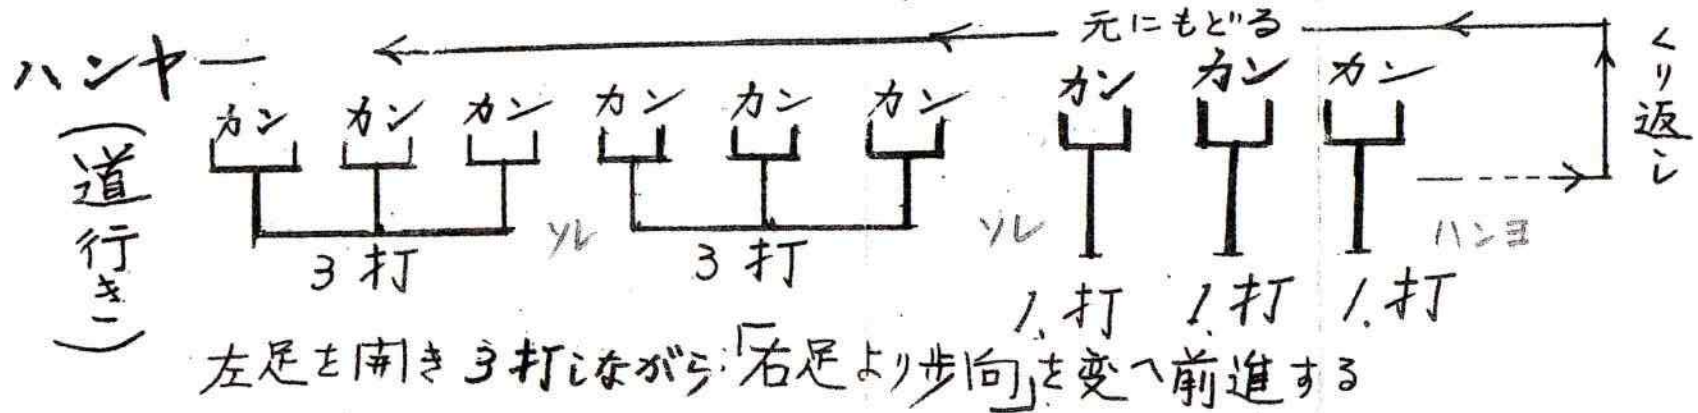 元にもどる
くり返し
ハンヤー
(道行き)
カン カン カン カン カン カン カン カン カン
3打 ソレ 3打 ソレ 1.打 1.打 1.打 ハンヨ
左足を開き3打しながら「右足より歩向」を変へ前進する